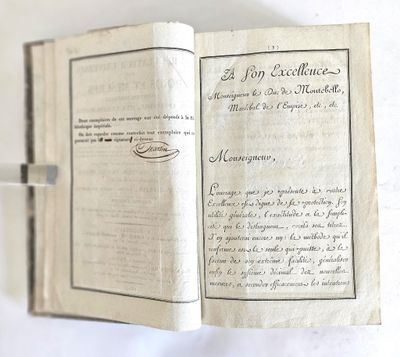 Deux exemplaires de cet ouvrage ont été déposés à la Bi-
bliothèque impériale.
On doit regarder comme contrefait tout exemplaire qui ne
portera pas signature
(3)
A Son Excellence
Monseigneur le Duc de Montebello,
Maréchal de l'Empire, etc., etc.
Monseigneur,
L'ouvrage que je présente à votre
Excellence est digne de sa protection. Son
utilité générale, l'exactitude et la simpli-
cité qui le distinguent, voilà ses titres.
J'y ajouterai encore que la méthode qu'il
renferme est la seule qui puisse, à la
faveur de son extrême facilité, généraliser
enfin le système décimal des nouvelles
mesures, et seconder efficacement les intentions